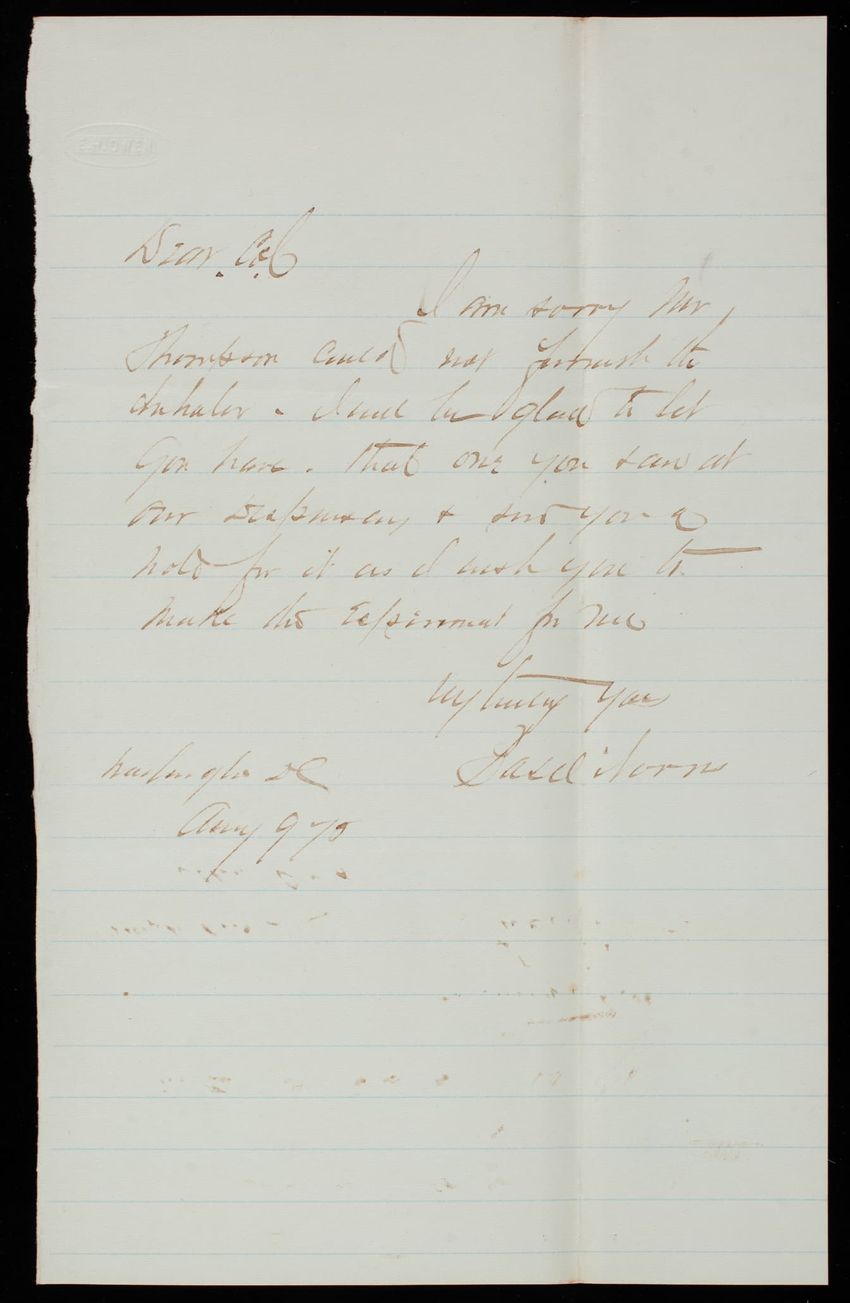 Dear Col
I am sorry Mr
Thompson could not furnish the
Inhaler - I will be glad to let
you have. that one you saw at
our Dispensary & send you a
note for it as I wish you to
make the Experiment for me
very truly yours
Washington DC
Aug 9 75